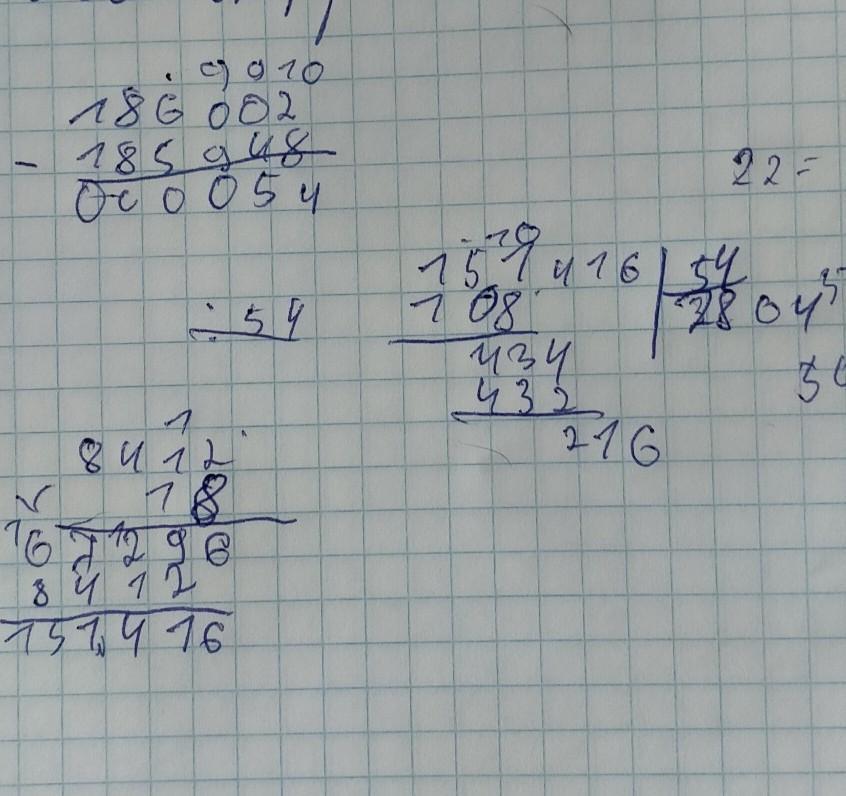 9 9 10
186 002
- 185 948
000 054
22 =
10
151 416 | 54
108 2804
: 54
434
432
216
1
8412
× 18
67296
8412
151 416